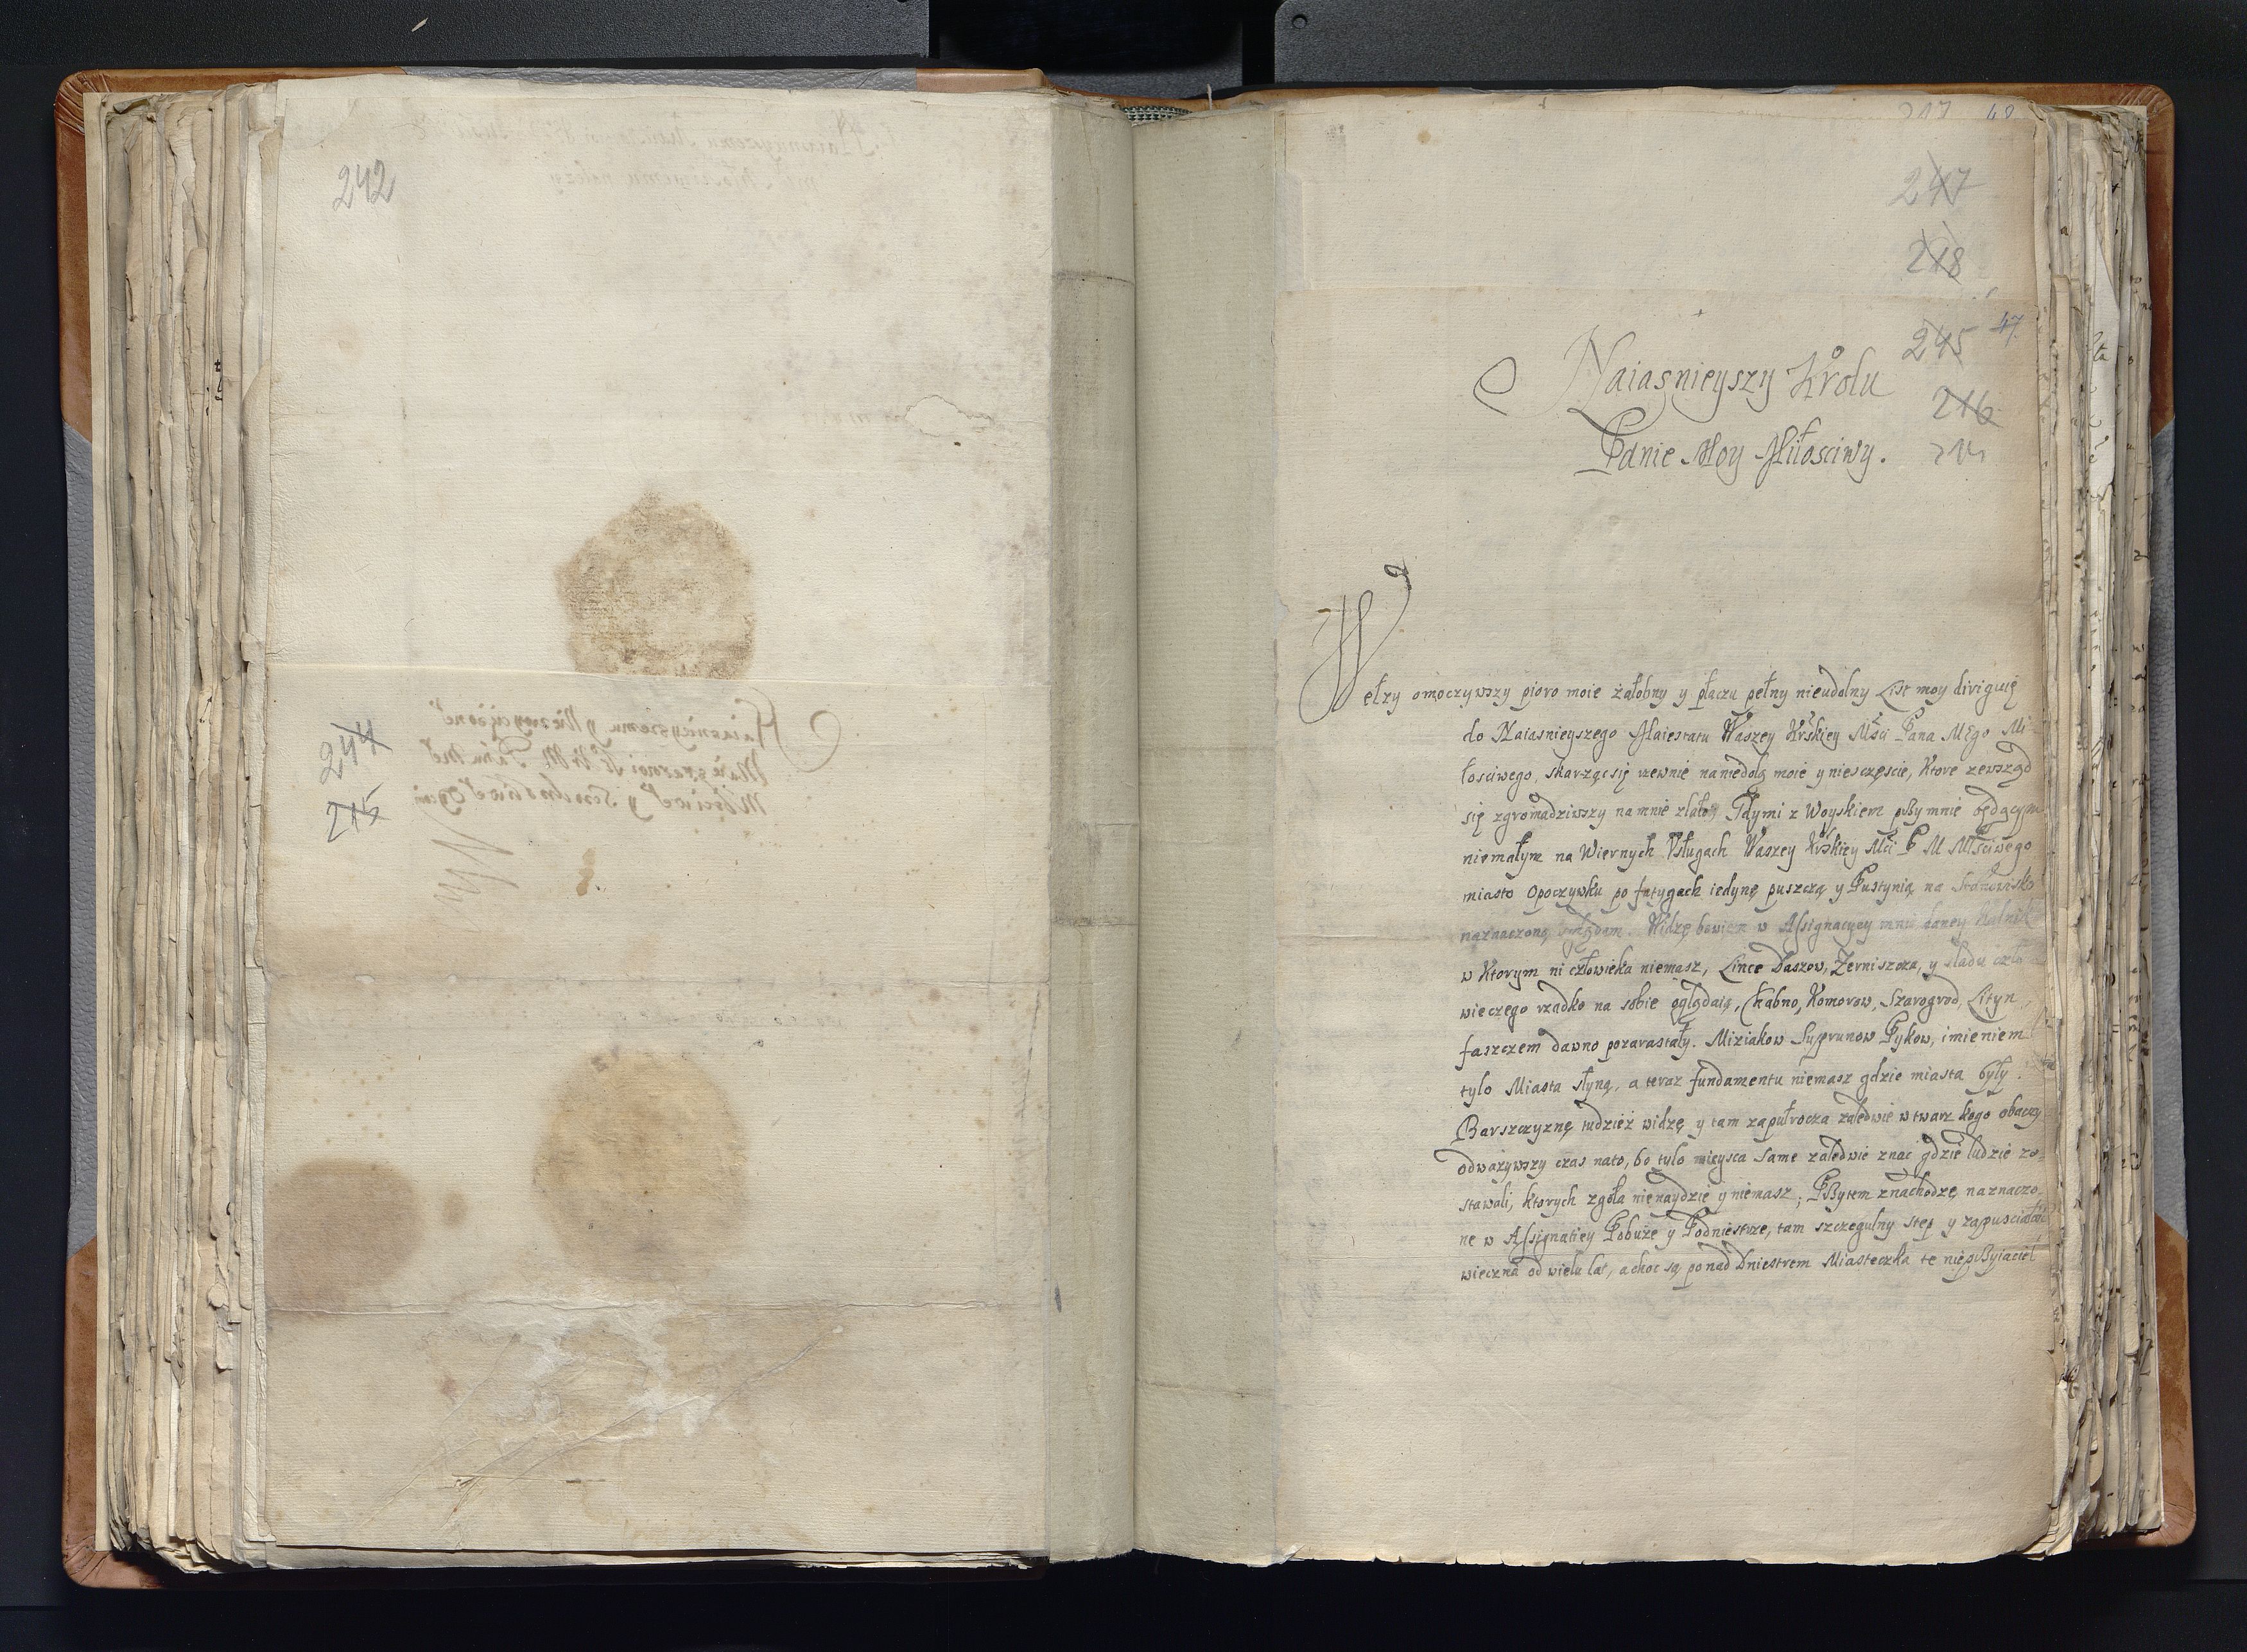 242
244
215
217 48
247
218
245 47
216
Naiasnieyszy Krolu
Panie Moy Miłosciwy.
W ełzy omoczywszy pioro moie żałobny y płaczu pełny nieudolny List moy diriguię
do Naiasnieyszego Maiestatu Waszey Krskiey Msci Pana Mego Mi-
łosciwego, skarząc się rzewnie na niedolą moię y niesczęscie, Ktore zewsząd
się zgromadziwszy na mnie zlało, Gdy mi z Woyskiem przy mnie będącym
niemałym na Wiernych Vsługach Waszey Krskiey Mci P M Msciwego
miasto opoczywku po fatygach iedynę puszczą y Pustynią na Stanowisko
naznaczoną oglądam. Widzę bowiem w Assignacyey mnie daney Kalnik
w Ktorym ni człowieka niemasz, Lince Daszow, Zerniszcza, y sladu czło
wieczego rzadko na sobie oglądaią, Chabno, Komorow, Szarogrod, Lityn,
faszczem dawno pozarastały. Miziakow Suprunow Pykow, imieniem
tylo Miasta słyną, a teraz fundamentu niemasz gdzie miasta były.
Barszczyznę tudzież widzę y tam zapułrocza zaledwie w twarz kogo obaczy
odważywszy czas nato, bo tylo mieysca same zaledwie znac gdzie ludzie zo-
stawali, ktorych zgoła nienaydzie y niemasz; Przytem znachodzę naznaczo-
ne w Assignatiey Pobuże y Podniestrze, tam szczegulny step y zapusciałość
wieczna od wielu lat, a choc są ponad Dniestrem Miasteczka te nieprzyiaciel